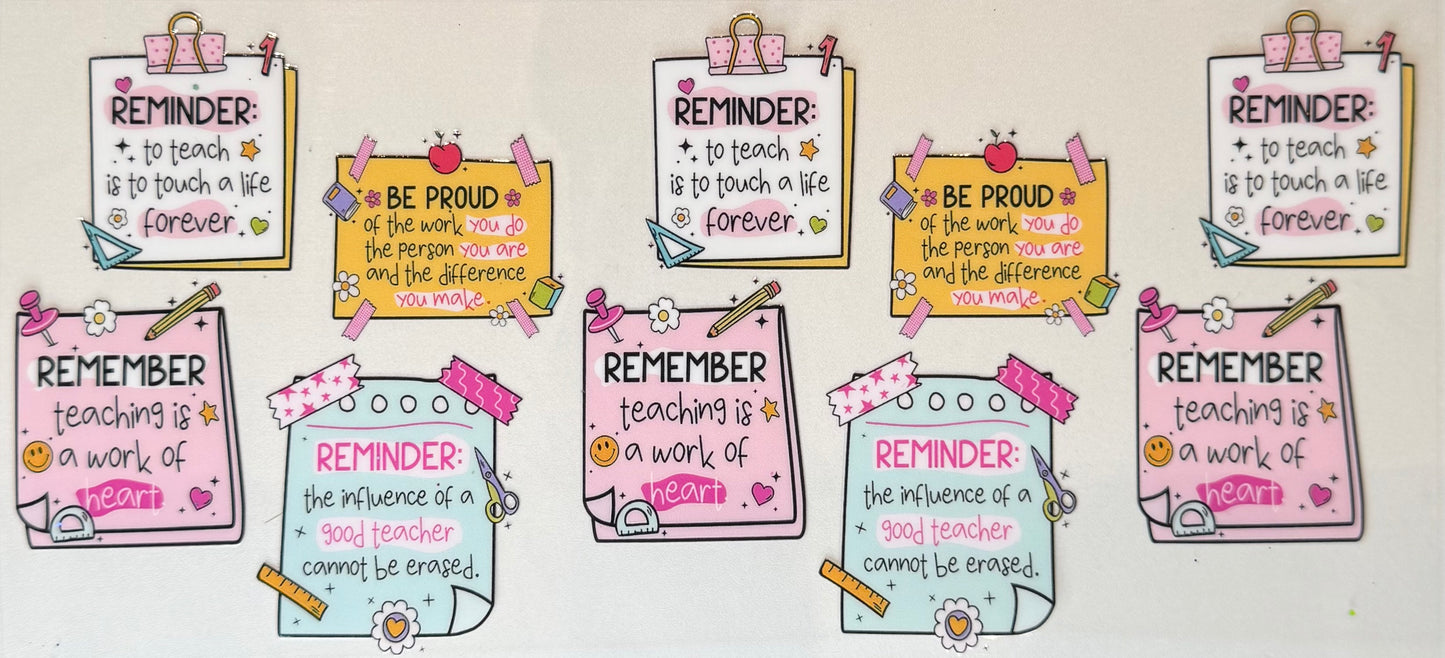 1
REMINDER:
to teach
is to touch a life
forever
BE PROUD
of the work you do
the person you are
and the difference
you make.
1
REMINDER:
to teach
is to touch a life
forever
BE PROUD
of the work you do
the person you are
and the difference
you make.
1
REMINDER:
to teach
is to touch a life
forever
REMEMBER
teaching is
a work of
heart
REMINDER:
the influence of a
good teacher
cannot be erased.
REMEMBER
teaching is
a work of
heart
REMINDER:
the influence of a
good teacher
cannot be erased.
REMEMBER
teaching is
a work of
heart